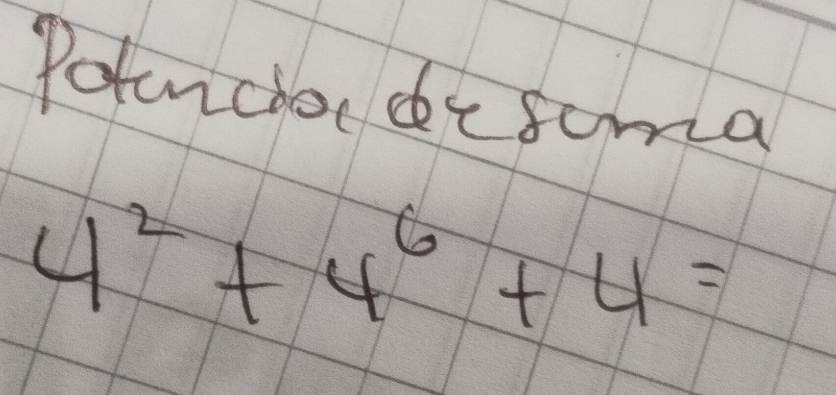 Potencias de suma
4² + 4⁶ + 4 =